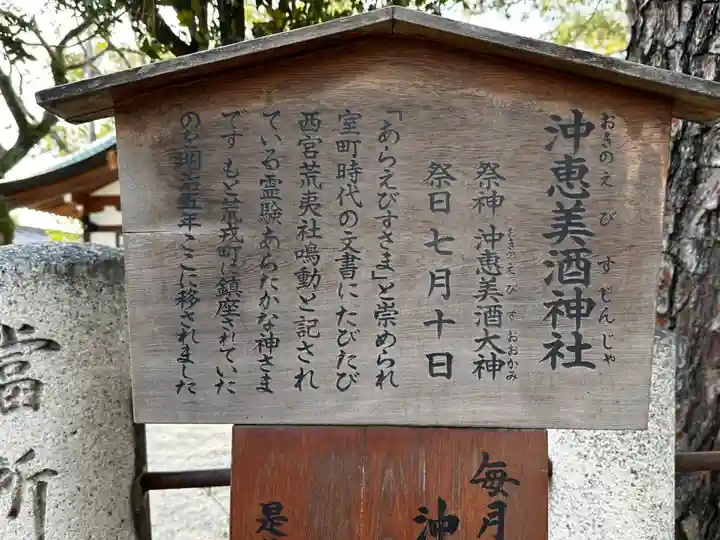 おきのえびすじんじゃ
沖恵美酒神社
おきのえびすおおかみ
祭神 沖恵美酒大神
祭日 七月十日
「あらえびすさま」と崇められ
室町時代の文書にたびたび
西宮荒夷社鳴動と記され
ている霊験あらたかな神さま
です もと荒戎町に鎮座されていた
のを明治五年ここに移されました
毎月
沖
是
當所